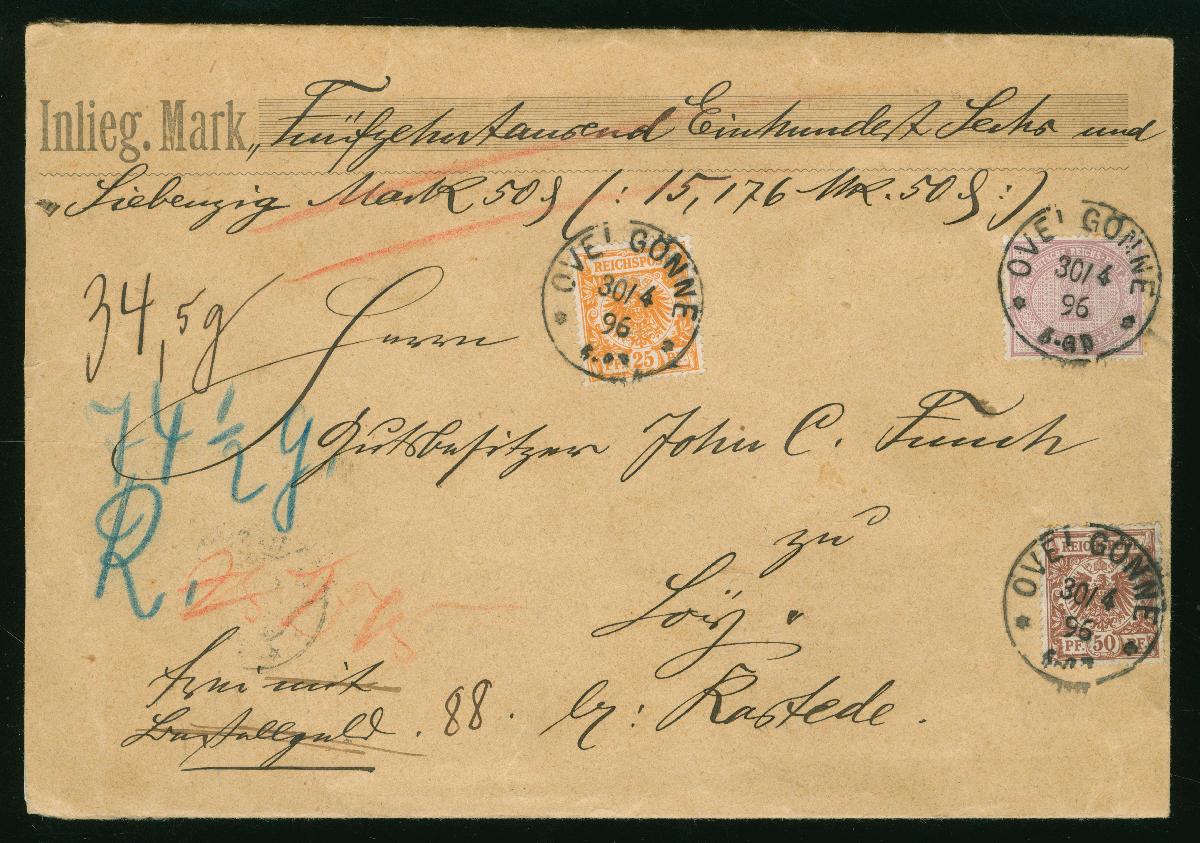 Inlieg. Mark „Fünfzehntausend Einhundert Sechs und
Siebenzig Mark 50 ₰ (: 15,176 Mk. 50 ₰ :)
OVELGÖNNE
30/4
96
REICHSPOST
PF. 25 PF.
OVELGÖNNE
30/4
96
34,5 g
Herrn
74 ½ g.
Gutsbesitzer John C. Funch
R.
zu
Loÿ.
OVELGÖNNE
30/4
96
PF. 50 PF.
frei mit
Bestellgeld. 88. bz: Rastede.